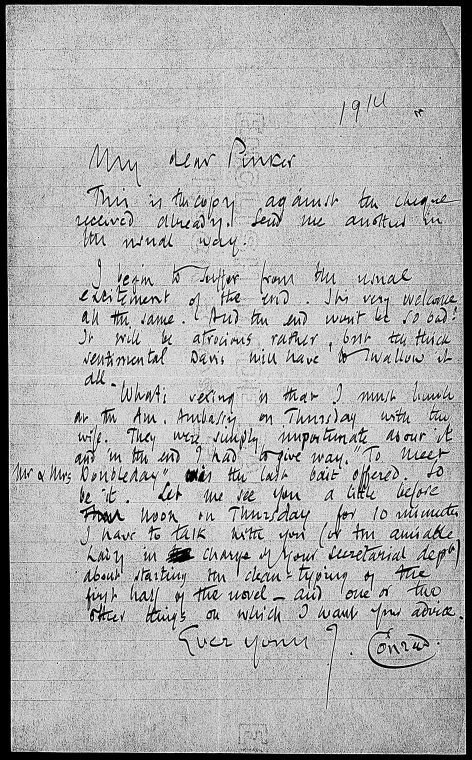 1914
My dear Pinker
This is the copy against the cheque
received already. Send me another in
the usual way.
I begin to suffer from the usual
excitement of the end. It's very welcome
all the same. And the end won't be so bad!
It will be atrocious rather, but the thick
sentimental Davis will have to swallow it
all.
What's vexing is that I must lunch
at the Am. Ambassy on Thursday with the
wife. They were simply importunate about it
and in the end I had to give way. "To meet
Mr & Mrs Doubleday" was the last bait offered. So
be it. Let me see you a little before
noon on Thursday for 10 minutes
I have to talk with you (or the amiable
Lady in charge of your secretarial dept)
about starting the clean-typing of the
first half of the novel – and one or two
other things on which I want your advice.
Ever yours J. Conrad.